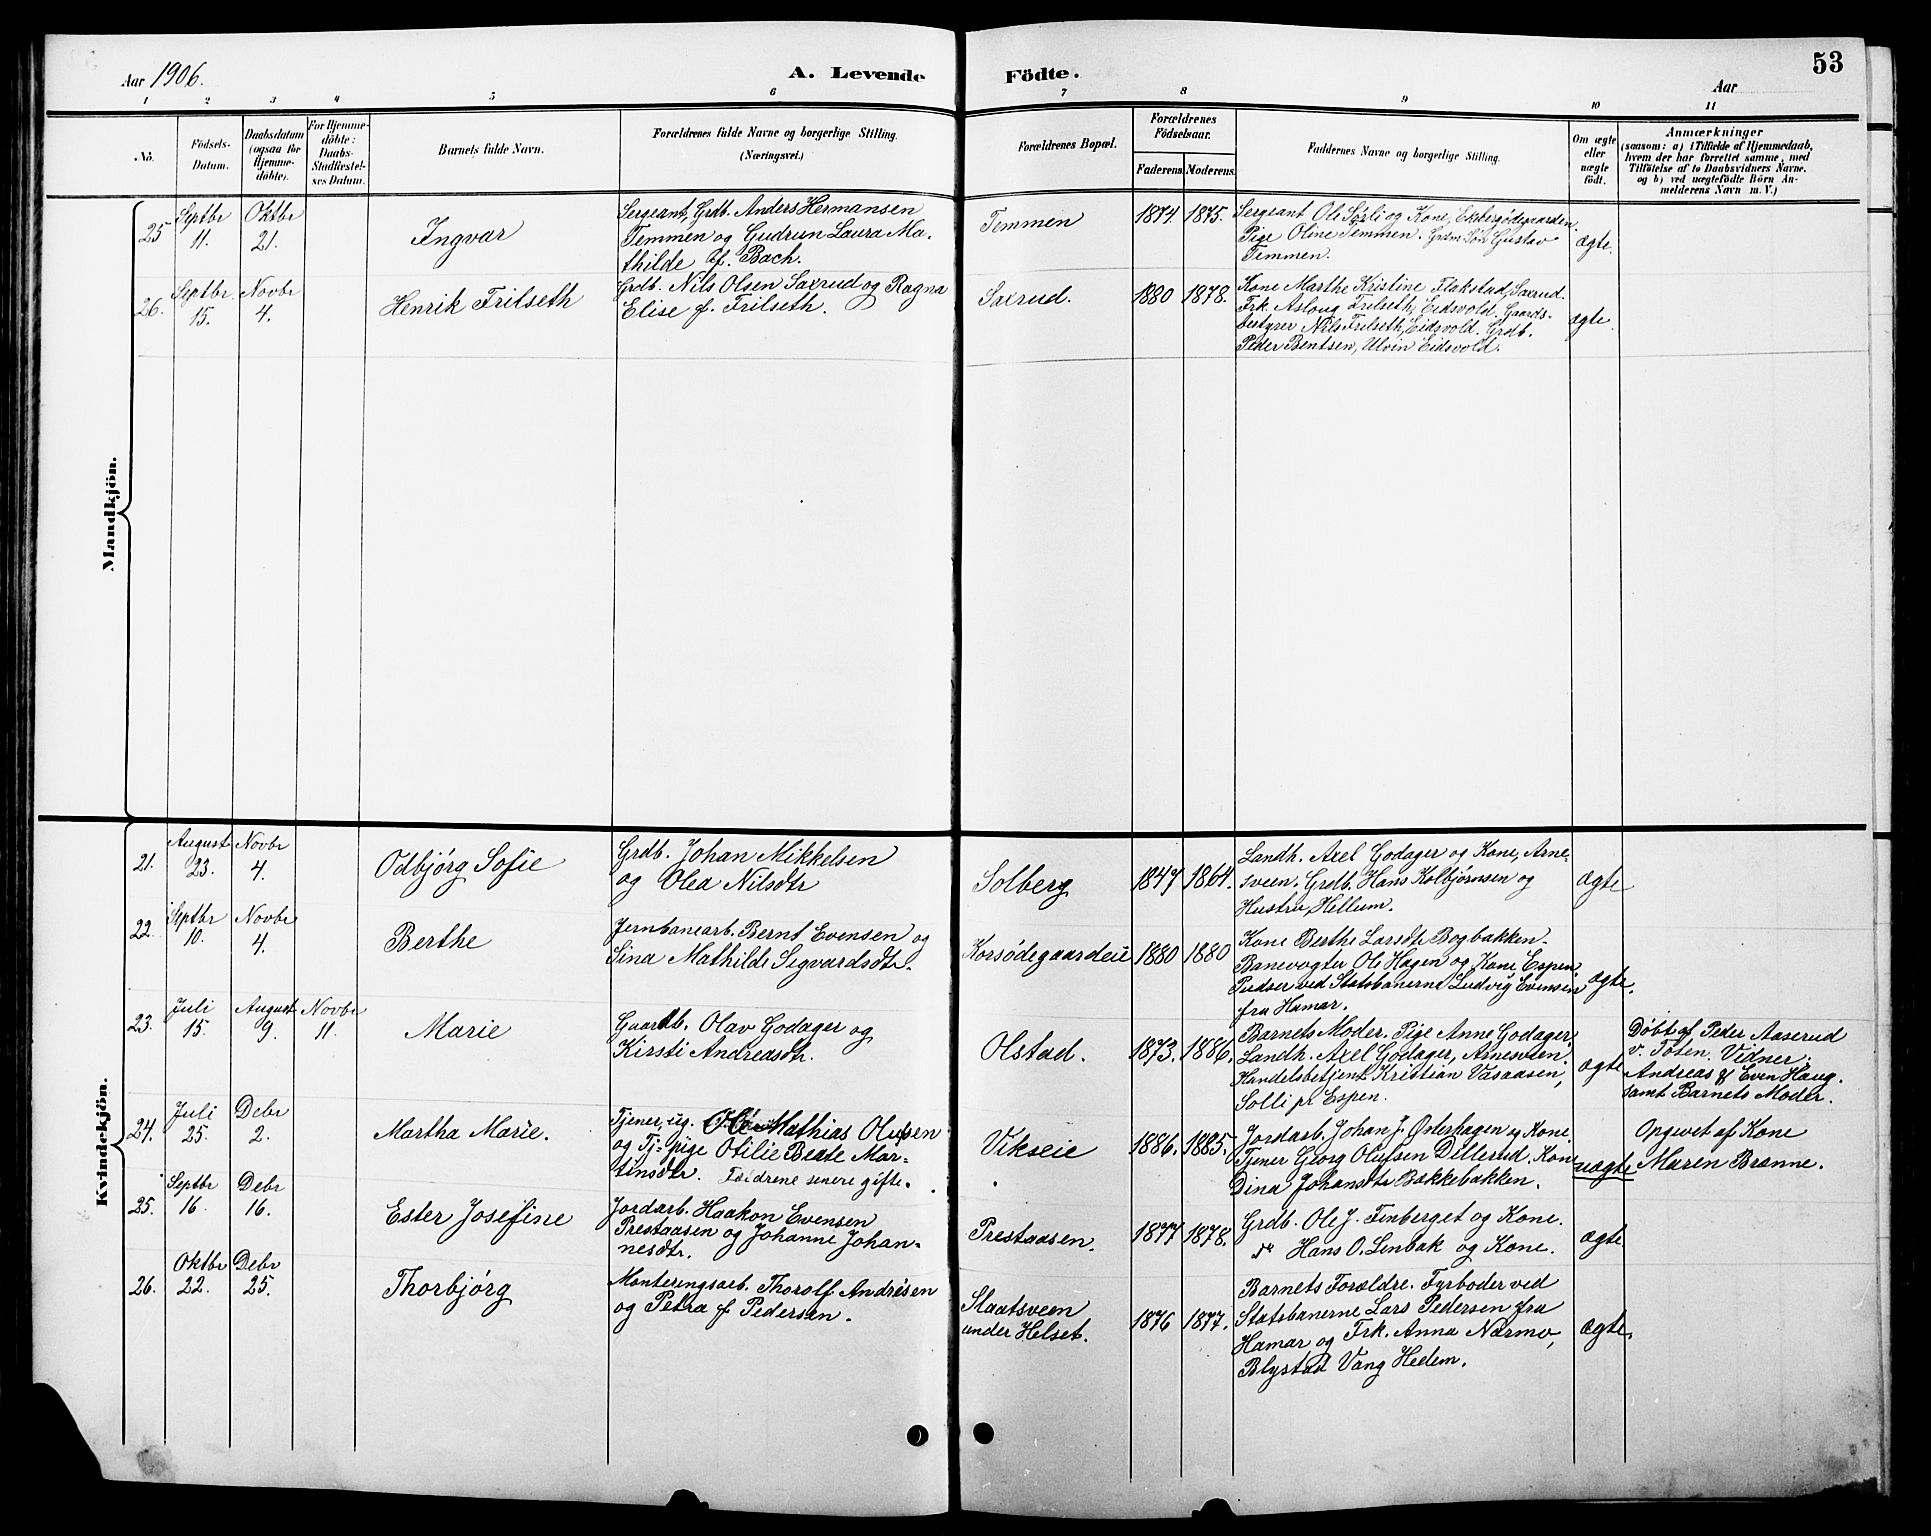 Aar 1906. A. Levende Födte. Aar 53
1 2 3 4 5 6 7 8 9 10 11
No. Födsels-Datum. Daabsdatum (ogsaa for Hjemme-döbte). For Hjemme-döbte: Daabs-Stadfæstel-ses Datum. Barnets fulde Navn. Forældrenes fulde Navne og borgerlige Stilling. (Næringsvei.) Forældrenes Bopæl. Forældrenes Födselsaar. Faderens Moderens Faddernes Navne og borgerlige Stilling. Om ægte eller uægte födt. Anmærkninger (saasom: a) i Tilfælde af Hjemmedaab, hvem der har forrettet samme, med Tilföielse af to Daabsvidners Navne. og b) ved uægtefödte Börn An-melderens Navn m. V.)
Mandkjön.
25 Septbr 11. Oktbr 21. Ingvar
Sergeant, Grdb. Anders Hermansen
Temmen og Gudrun Laura Ma-
thilde f. Bach.
Temmen 1874. 1875.
Sergeant Ole Sørli og Kone, Ekbergødegaarden.
Pige Oline Temmen. Grdm Søn Gustav
Temmen.
ægte.
26. Septbr. 15. Novbr 4. Henrik Frilseth
Grdb. Nils Olsen Saxrud og Ragna
Elise f. Frilseth.
Saxrud. 1880 1878.
Kone Marthe Kristine Flakstad, Saxrud.
Frk. Aslaug Frilseth, Eidsvold. Gaards-
bestyrer Nils Frilseth, Eidsvold. Grdb.
Peder Bentsen, Ulvin Eidsvold.
ægte.
Kvindekjön.
21. August 23. Novbr 4. Odbjørg Sofie
Grdb. Johan Mikkelsen
og Olea Nilsdtr
Solberg 1847 1864.
Landh. Axel Godager og Kone, Arne-
sveen. Grdb. Hans Kolbjørnsen og
Hustru, Hillum.
ægte
22 Septbr 10. Novbr 4. Berthe
Jernbanearb. Bernt Evensen og
Sina Mathilde Segvardsdtr.
Korsødegaardeie 1880 1880
Kone Berthe Larsdtr Bogbakken.
Banevogter Ole Hagen og Kone, Espen.
Pudser ved Statsbanerne Ludvig Evensen
fra Hamar.
ægte.
23. Juli 15. August 9. Novbr 11. Marie
Gaardb. Olav Godager og
Kirsti Andreasdtr.
Olstad. 1873. 1886.
Barnets Moder. Pige Anne Godager.
Landh. Axel Godager, Arnesveen.
Handelsbetjent Kristian Vasaasen,
Solli pr Espen.
ægte
Døbt af Peder Aaserud
v. Toten. Vidner:
Andreas & Even Haug.
samt Barnets Moder.
24. Juli 25. Debr 2. Martha Marie.
Tjener, ug. Ole Mathias Olufsen
og Tj-pige Otilie Beate Mar-
tinsdtr. Foreldrene senere gifte.
Vikseie 1886. 1885.
Jordarb. Johan J. Østerhagen og Kone.
Tjener Georg Olufsen Dillerud. Kone
Dina Johansdtr Bakkebakken.
uægte
Opgivet af Kone
Maren Brænne.
25. Septbr 16. Debr 16. Ester Josefine
Jordarb. Haakon Evensen
Prestaasen og Johanne Johan-
nesdtr.
Prestaasen. 1877 1878.
Grdb. Ole J. Finberget og Kone.
do Hans O. Lenbak og Kone.
ægte
26. Oktbr 22. Debr 25. Thorbjørg
Monteringsarb. Thorolf Andrésen
og Petra f. Pedersen.
Slaatsveen
under Helset.
1876 1877.
Barnets Forældre. Fyrbøder ved
Statsbanerne Lars Pedersen fra
Hamar og Frk. Anna Nærmo,
Blystad Vang Hedem.
ægte.